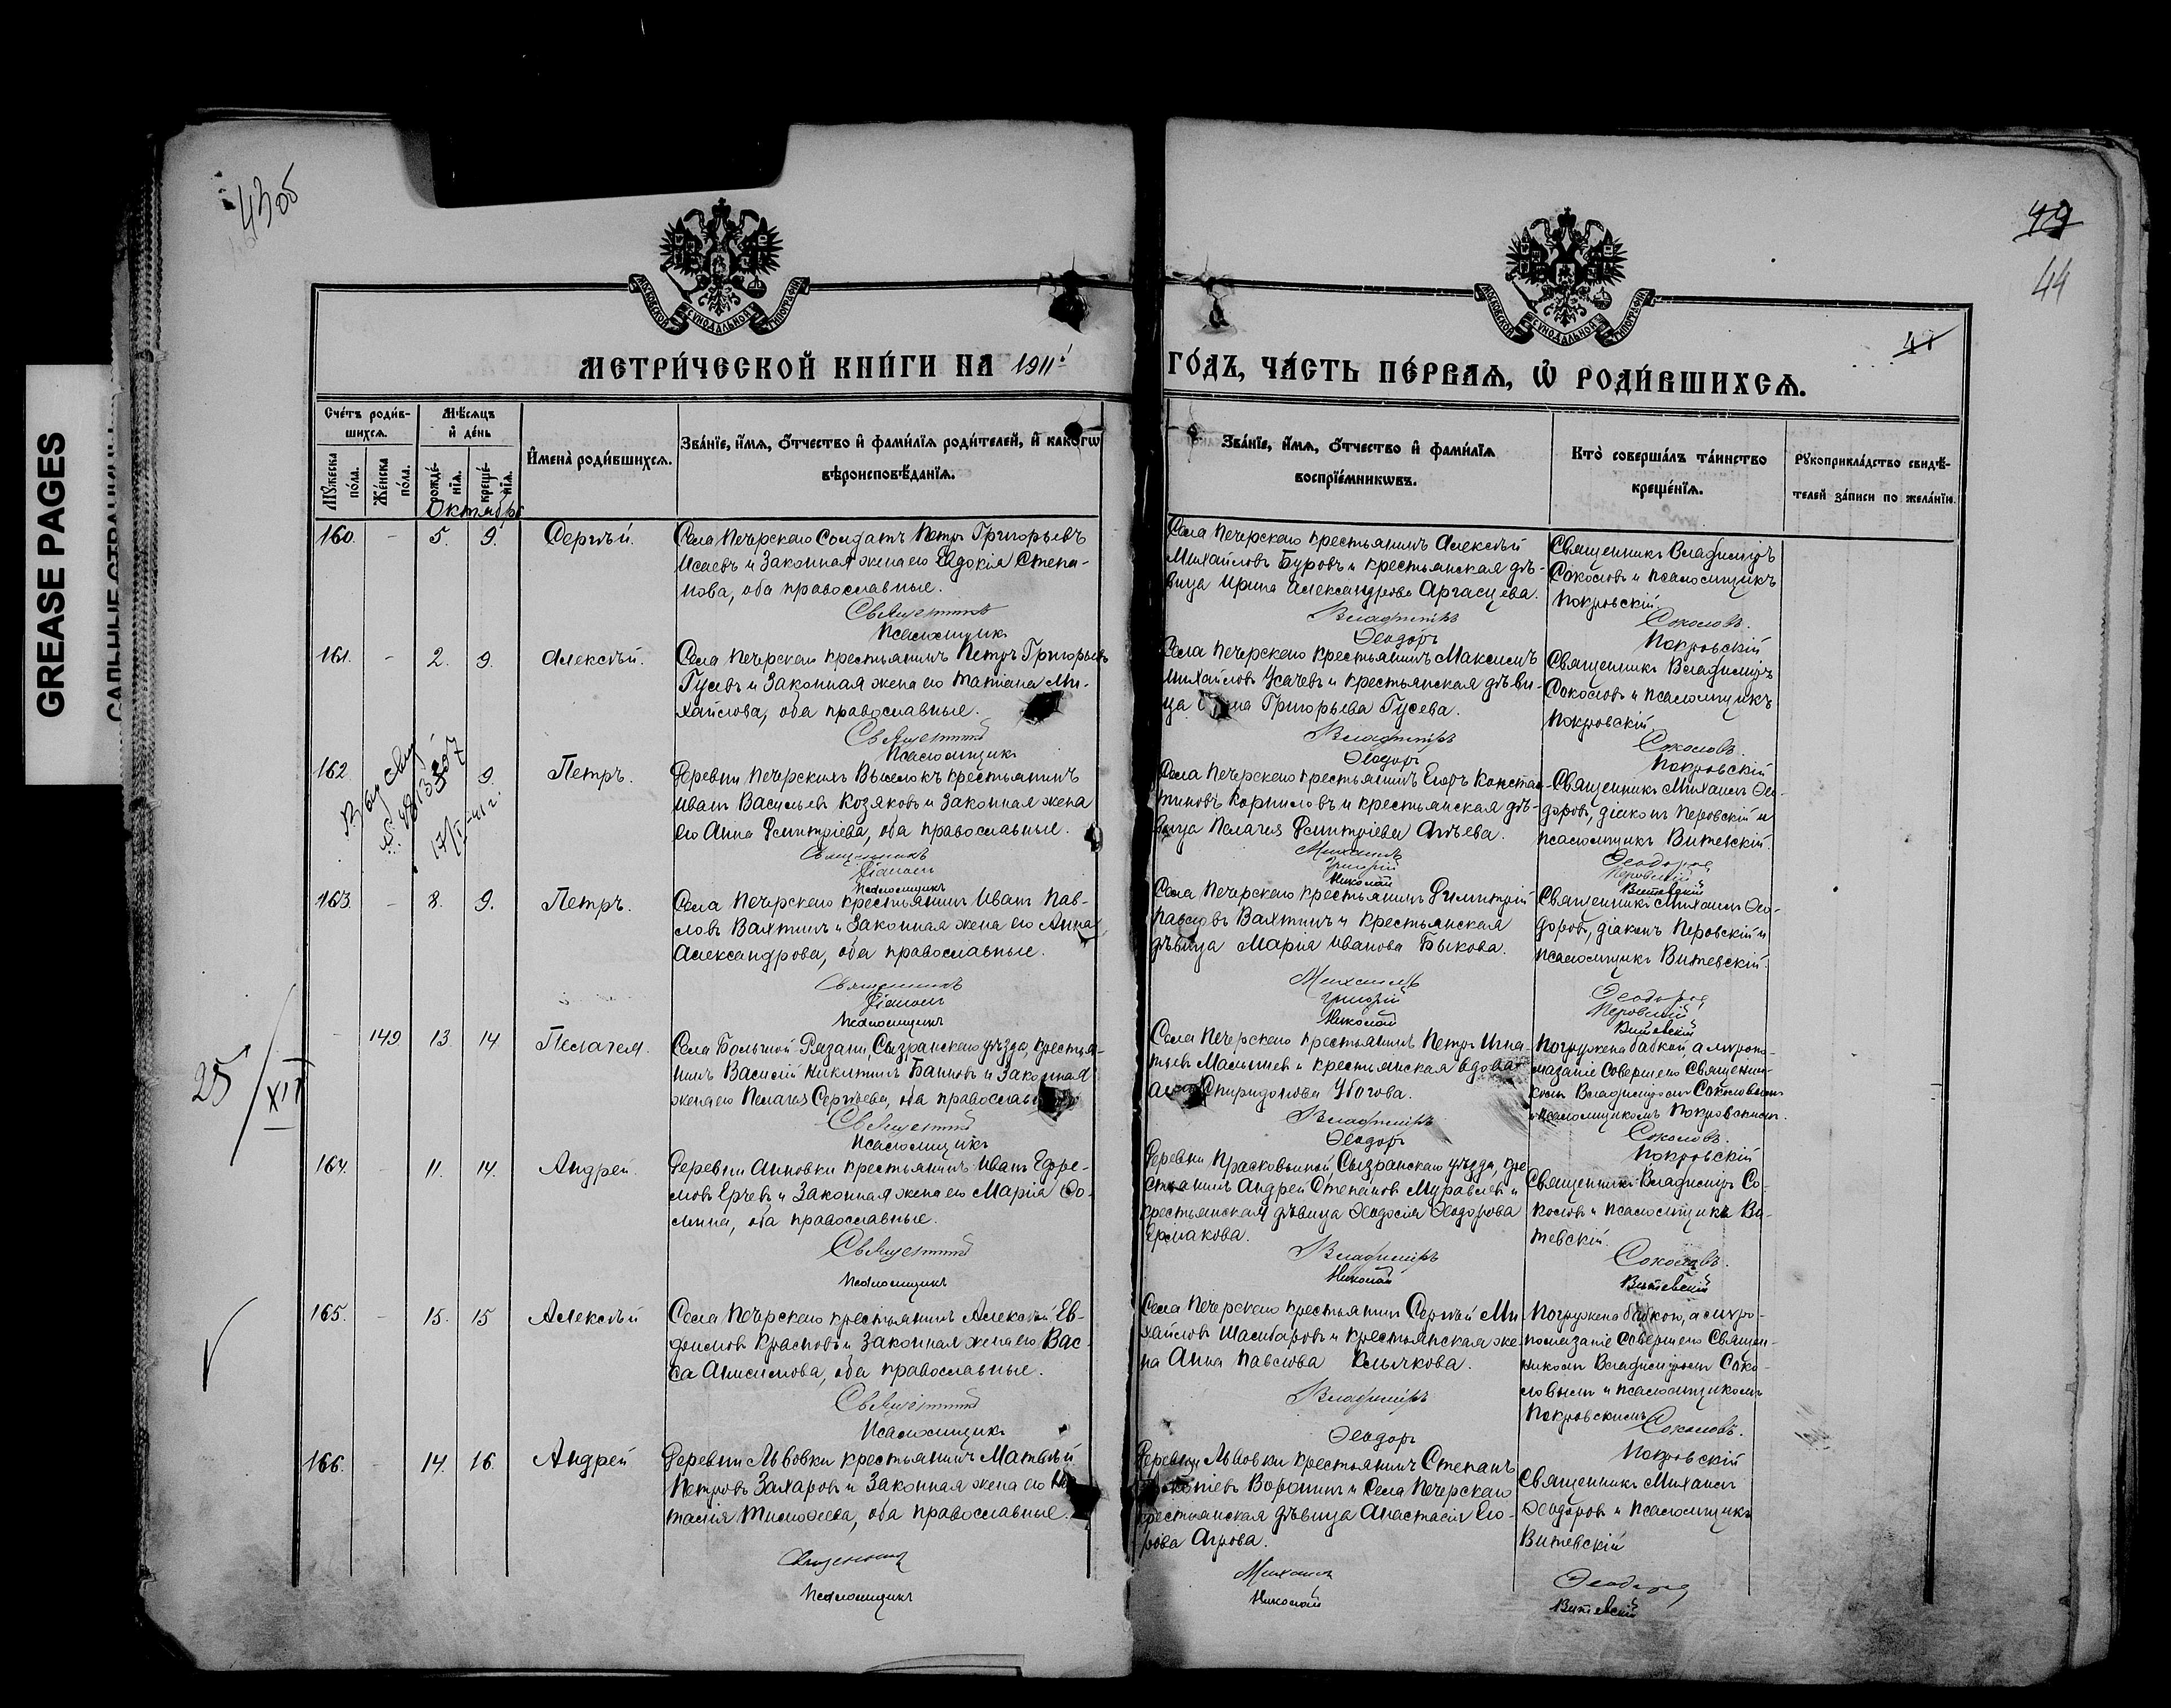 GREASE PAGES
43 об
49
44
41
МОСКОВСКОЙ СѴНОДАЛЬНОЙ ТИПОГРАФІИ
МОСКОВСКОЙ СѴНОДАЛЬНОЙ ТИПОГРАФІИ
МЕТРИ́ЧЕСКОЙ КНИ́ГИ НА 1911й
ГО́ДЪ, ЧА́СТЬ ПЕ́РВАѦ, Ѽ РОДИ́ВШИХСѦ.
Сче́тъ роди́в-
шихсѧ.
Мꙋ́жеска по́ла.
Же́нска по́ла.
Мѣ́сѧцъ
и҆ де́нь
рожде́-
нїѧ.
креще́-
нїѧ.
И҆мена̀ роди́вшихсѧ.
Зва́нїе, и҆́мѧ, ѻ҆́тчество и҆ фами́лїѧ роди́телей, и҆ како́гѡ
вѣроисповѣ́данїѧ.
Зва́нїе, и҆́мѧ, ѻ҆́тчество и҆ фами́лїѧ
воспрїе́мникѡвъ.
Кто̀ соверша́лъ та́инство
креще́нїѧ.
Рꙋкоприкла́дство свидѣ́-
телей за́писи по жела́нїю.
Октябрь
160. - 5. 9. Сергѣй.
Села Печерскаго солдатъ Петръ Григорьевъ
Исаевъ и законная жена его Евдокія Степа-
нова, оба православные.
Священникъ
Псаломщикъ
Села Печерскаго крестьянинъ Алексѣй
Михайловъ Буровъ и крестьянская дѣ-
вица Ирина Александрова Аргасцева.
Владиміръ
Ѳеодоръ
Священникъ Владиміръ
Соколовъ и псаломщикъ
Покровскій.
Соколовъ.
Покровскій
161. - 2. 9. Алексѣй.
Села Печерскаго крестьянинъ Петръ Григорьевъ
Гусевъ и законная жена его Татіана Ми-
хайлова, оба православные.
Священникъ
Псаломщикъ
Села Печерскаго крестьянинъ Максимъ
Михайловъ Усачевъ и крестьянская дѣви-
ца Григорьева Гусева.
Владиміръ
Ѳеодоръ
Священникъ Владиміръ
Соколовъ и псаломщикъ
Покровскій
Соколовъ.
Покровскій
162 9. Петръ.
Деревни Печерскихъ Выселокъ крестьянинъ
Иванъ Васильевъ Козяковъ и законная жена
его Анна Димитріева, оба православные.
Священникъ
Діаконъ
Псаломщикъ
Села Печерскаго крестьянинъ Егоръ Констан-
тиновъ Корниловъ и крестьянская дѣ-
вица Пелагея Димитріева
Михаилъ
Григорій
Николай
Священникъ Михаилъ Ѳео-
доровъ, діаконъ Перовскій и
псаломщикъ Витевскій.
Ѳеодоровъ
Перовскій
Витевскій
163. - 8. 9. Петръ.
Села Печерскаго крестьянинъ Иванъ Пав-
ловъ Вахтинъ и законная жена его Анна
Александрова, оба православные.
Священникъ
Діаконъ
Псаломщикъ
Села Печерскаго крестьянинъ Димитрій
Павловъ Вахтинъ и крестьянская
дѣвица Марія Иванова Быкова.
Михаилъ
Григорій
Николай
Священникъ Михаилъ Ѳео-
доровъ, діаконъ Перовскій и
псаломщикъ Витевскій.
Ѳеодоровъ
Перовскій
Витевскій
25/XII
- 149 13. 14 Пелагея.
Села Большой Рязани, Сызранскаго уѣзда, крестья-
нинъ Василій Никитинъ Банновъ и законная
жена его Пелагея Сергѣева, оба православные
Священникъ
Псаломщикъ
Села Печерскаго крестьянинъ Петръ Игна-
тьевъ Малышевъ и крестьянская вдова
Спиридонова Убогова.
Владиміръ
Ѳеодоръ
Погружена бабкой, а миропо-
мазаніе совершено Священни-
комъ Владиміромъ Соколовымъ
и псаломщикомъ Покровскимъ.
Соколовъ.
Покровскій
164. - 11. 14. Андрей.
Деревни Анновки крестьянинъ Иванъ Ефре-
мовъ Ерчевъ и законная жена его Марія Ѳо-
мина, оба православные.
Священникъ
Псаломщикъ
Деревни Прасковьиной, Сызранскаго уѣзда, кре-
стьянинъ Андрей Степановъ Муравлевъ и
крестьянская дѣвица Ѳеодосія Ѳеодорова
Ермакова.
Владиміръ
Николай
Священникъ Владиміръ Со-
коловъ и псаломщикъ Ви-
тевскій.
Соколовъ.
Витевскій
165. - 15. 15 Алексѣй
Села Печерскаго крестьянинъ Алексѣй Ев-
фимовъ Красновъ и законная жена его Вас-
са Анисимова, оба православные.
Священникъ
Псаломщикъ
Села Печерскаго крестьянинъ Сергѣй Ми-
хайловъ Шалибаровъ и крестьянская же-
на Анна Павлова Клычкова.
Владиміръ
Ѳеодоръ
Погружена бабкой, а миро-
помазаніе совершено Священ-
никомъ Владиміромъ Соко-
ловымъ и псаломщикомъ
Покровскимъ.
Соколовъ.
Покровскій
166. - 14. 16. Андрей
Деревни Львовки крестьянинъ Матвѣй
Петровъ Захаровъ и законная жена его На-
талія Тимоѳеева, оба православные.
Священникъ
Псаломщикъ
Деревни Львовки крестьянинъ Степанъ
Воронинъ и села Печерскаго
крестьянская дѣвица Анастасія Его-
рова Агрова.
Михаилъ
Николай
Священникъ Михаилъ
Ѳеодоровъ и псаломщикъ
Витевскій
Ѳеодоровъ
Витевскій